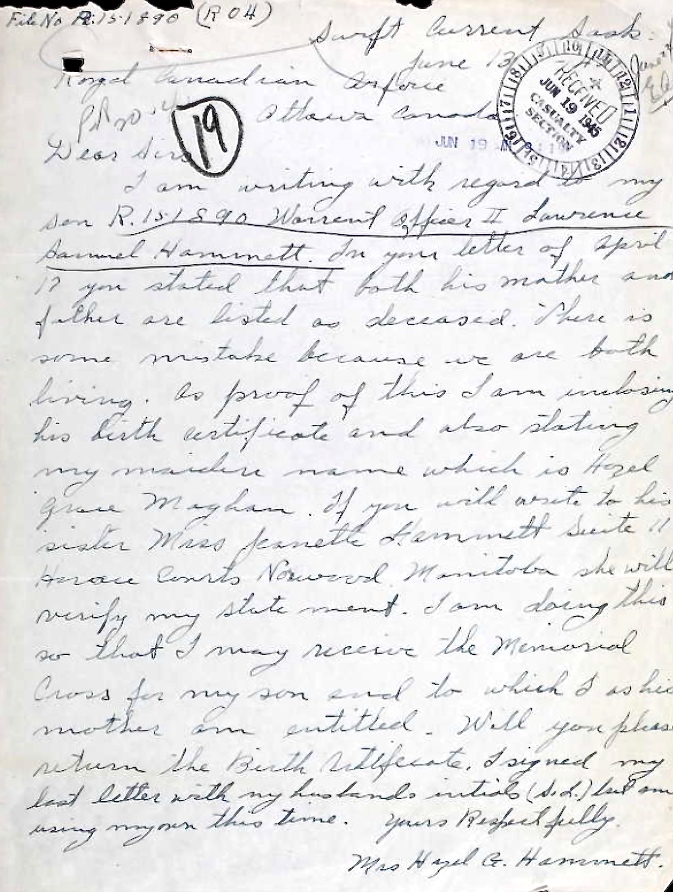 File No R.151890 (R04)
Swift Current Sask.
June 13
Royal Canadian Airforce
Ottawa Canada
19
RECEIVED
JUN 19 1945
CASUALTY
SECTION
JUN 19
Dear Sirs
I am writing with regard to my
son R.151890 Warrent Officer II Lawrence
Samuel Hammett. In your letter of April
17 you stated that both his mother and
father are listed as deceased. There is
some mistake because we are both
living. As proof of this I am inclosing
his birth certificate and also stating
my maiden name which is Hazel
Grace Meghan. If you will write to his
sister Miss Jeanette Hammett Suite 11
Horace Courts Norwood Manitoba she will
verify my state ment. I am doing this
so that I may receive the Memorial
Cross for my son and to which I as his
mother am entitled. Will you please
return the Birth Certificate. I signed my
last letter with my husbands initials (S.L.) but am
using my own this time. Yours Respectfully.
Mrs Hazel G. Hammett.